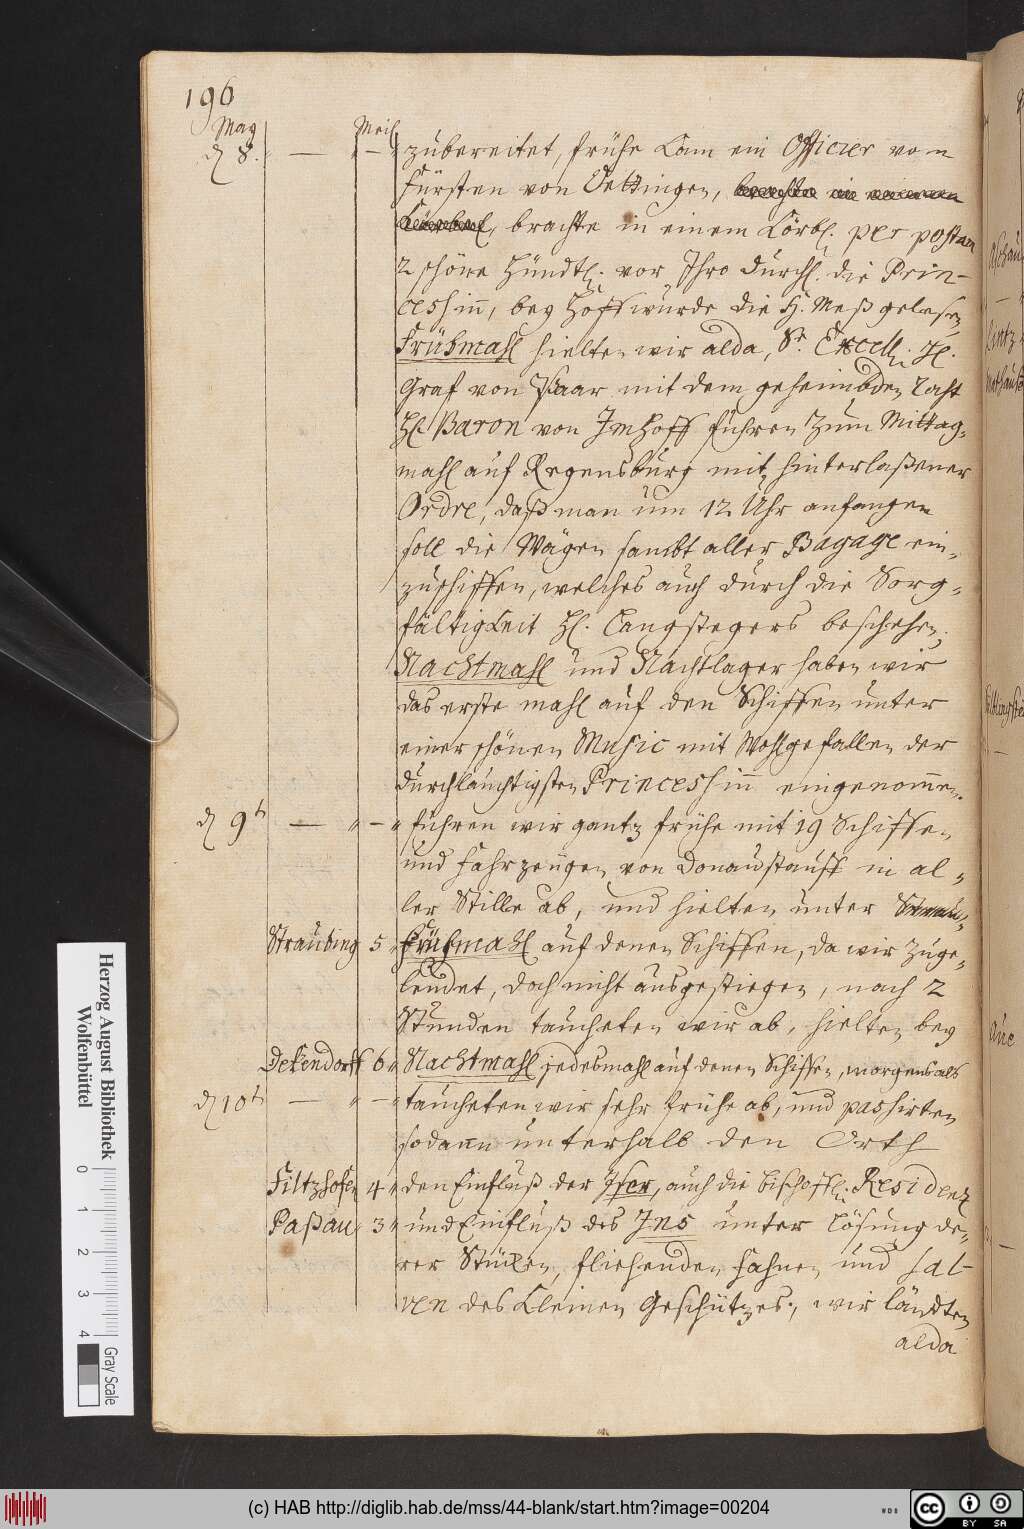 196
May Meil
d 8. — " — " zubereitet, frühe kam ein Officier vom
Fürsten von Oettingen,
brachte in einem Körbl. per postam
2 schöne Hündtl. vor Ihro Durchl. die Prin-
ceshin̄, bey Hoff wurde die H. Meß gelesen,
Frühmahl hielten wir alda, Sr. Excell. H.
Graf von Paar mit dem geheimbden Raht
H. Baron von Imhoff fuhren zum Mittag-
mahl auf Regensburg mit hinterlaßener
Ordre, daß man um 12 Uhr anfangen
soll die Wägen sambt aller Bagage ein-
zuschiffen, welches auch durch die Sorg-
fältigkeit H. Langstegers beschehen,
Nachtmahl und Nachtlager haben wir
das erste mahl auf den Schiffen unter
einer schönen Music mit Wohlgefallen der
durchläuchtigsten Princeshin̄ eingenom̄en.
d 9t — " — " fuhren wir gantz frühe mit 19 Schiffen
und Fahrzeügen von Donaustauff in al-
ler Stille ab, und hielten unter
Straubing 5 " Frühmahl auf denen Schiffen, da wir zuge-
lendet, doch nicht ausgestiegen, nach 2
Stunden taucheten wir ab, hielten bey
Dekendorff 6 " Nachtmahl jedesmahl auf denen Schiffen, morgens als
d 10t — " — " taucheten wir sehr frühe ab, und pashirten
sodann unterhalb den Orth
Filtzhofen 4 " den Einfluß der Iser, auch die bischoffl. Residenz
Paßau 3 " und Einfluß des Ins unter Lösung de-
rer Stücken, fliehenden Fahnen und Sal-
ven des kleinen Geschützes, wir ländten
alda
Herzog August Bibliothek
Wolfenbüttel
0 1 2 3 4
Gray Scale
(c) HAB http://diglib.hab.de/mss/44-blank/start.htm?image=00204
WDB
cc BY SA